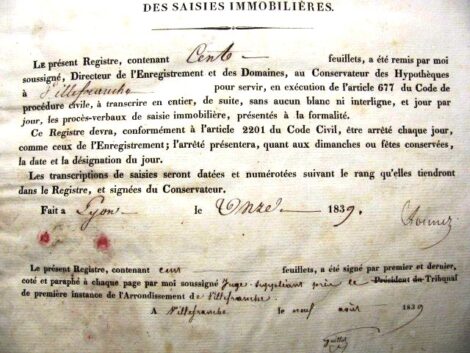 DES SAISIES IMMOBILIÈRES.
LE présent Registre, contenant Cent feuillets, a été remis par moi
soussigné, Directeur de l'Enregistrement et des Domaines, au Conservateur des Hypothèques
à Villefranche pour servir, en exécution de l'article 677 du Code de
procédure civile, à transcrire en entier, de suite, sans aucun blanc ni interligne, et jour par
jour, les procès-verbaux de saisie immobilière, présentés à la formalité.
Ce Registre devra, conformément à l'article 2201 du Code Civil, être arrêté chaque jour,
comme ceux de l'Enregistrement; l'arrêté présentera, quant aux dimanches ou fêtes conservées,
la date et la désignation du jour.
Les transcriptions de saisies seront datées et numérotées suivant le rang qu'elles tiendront
dans le Registre, et signées du Conservateur.
Fait a Lyon le Onze 1839.
Le présent Registre, contenant cent feuillets, a été signé par premier et dernier,
coté et paraphé à chaque page par moi soussigné Juge suppléant près le Président du Tribunal
de première instance de l'Arrondissement de Villefranche.
A Villefranche le neuf août 1839